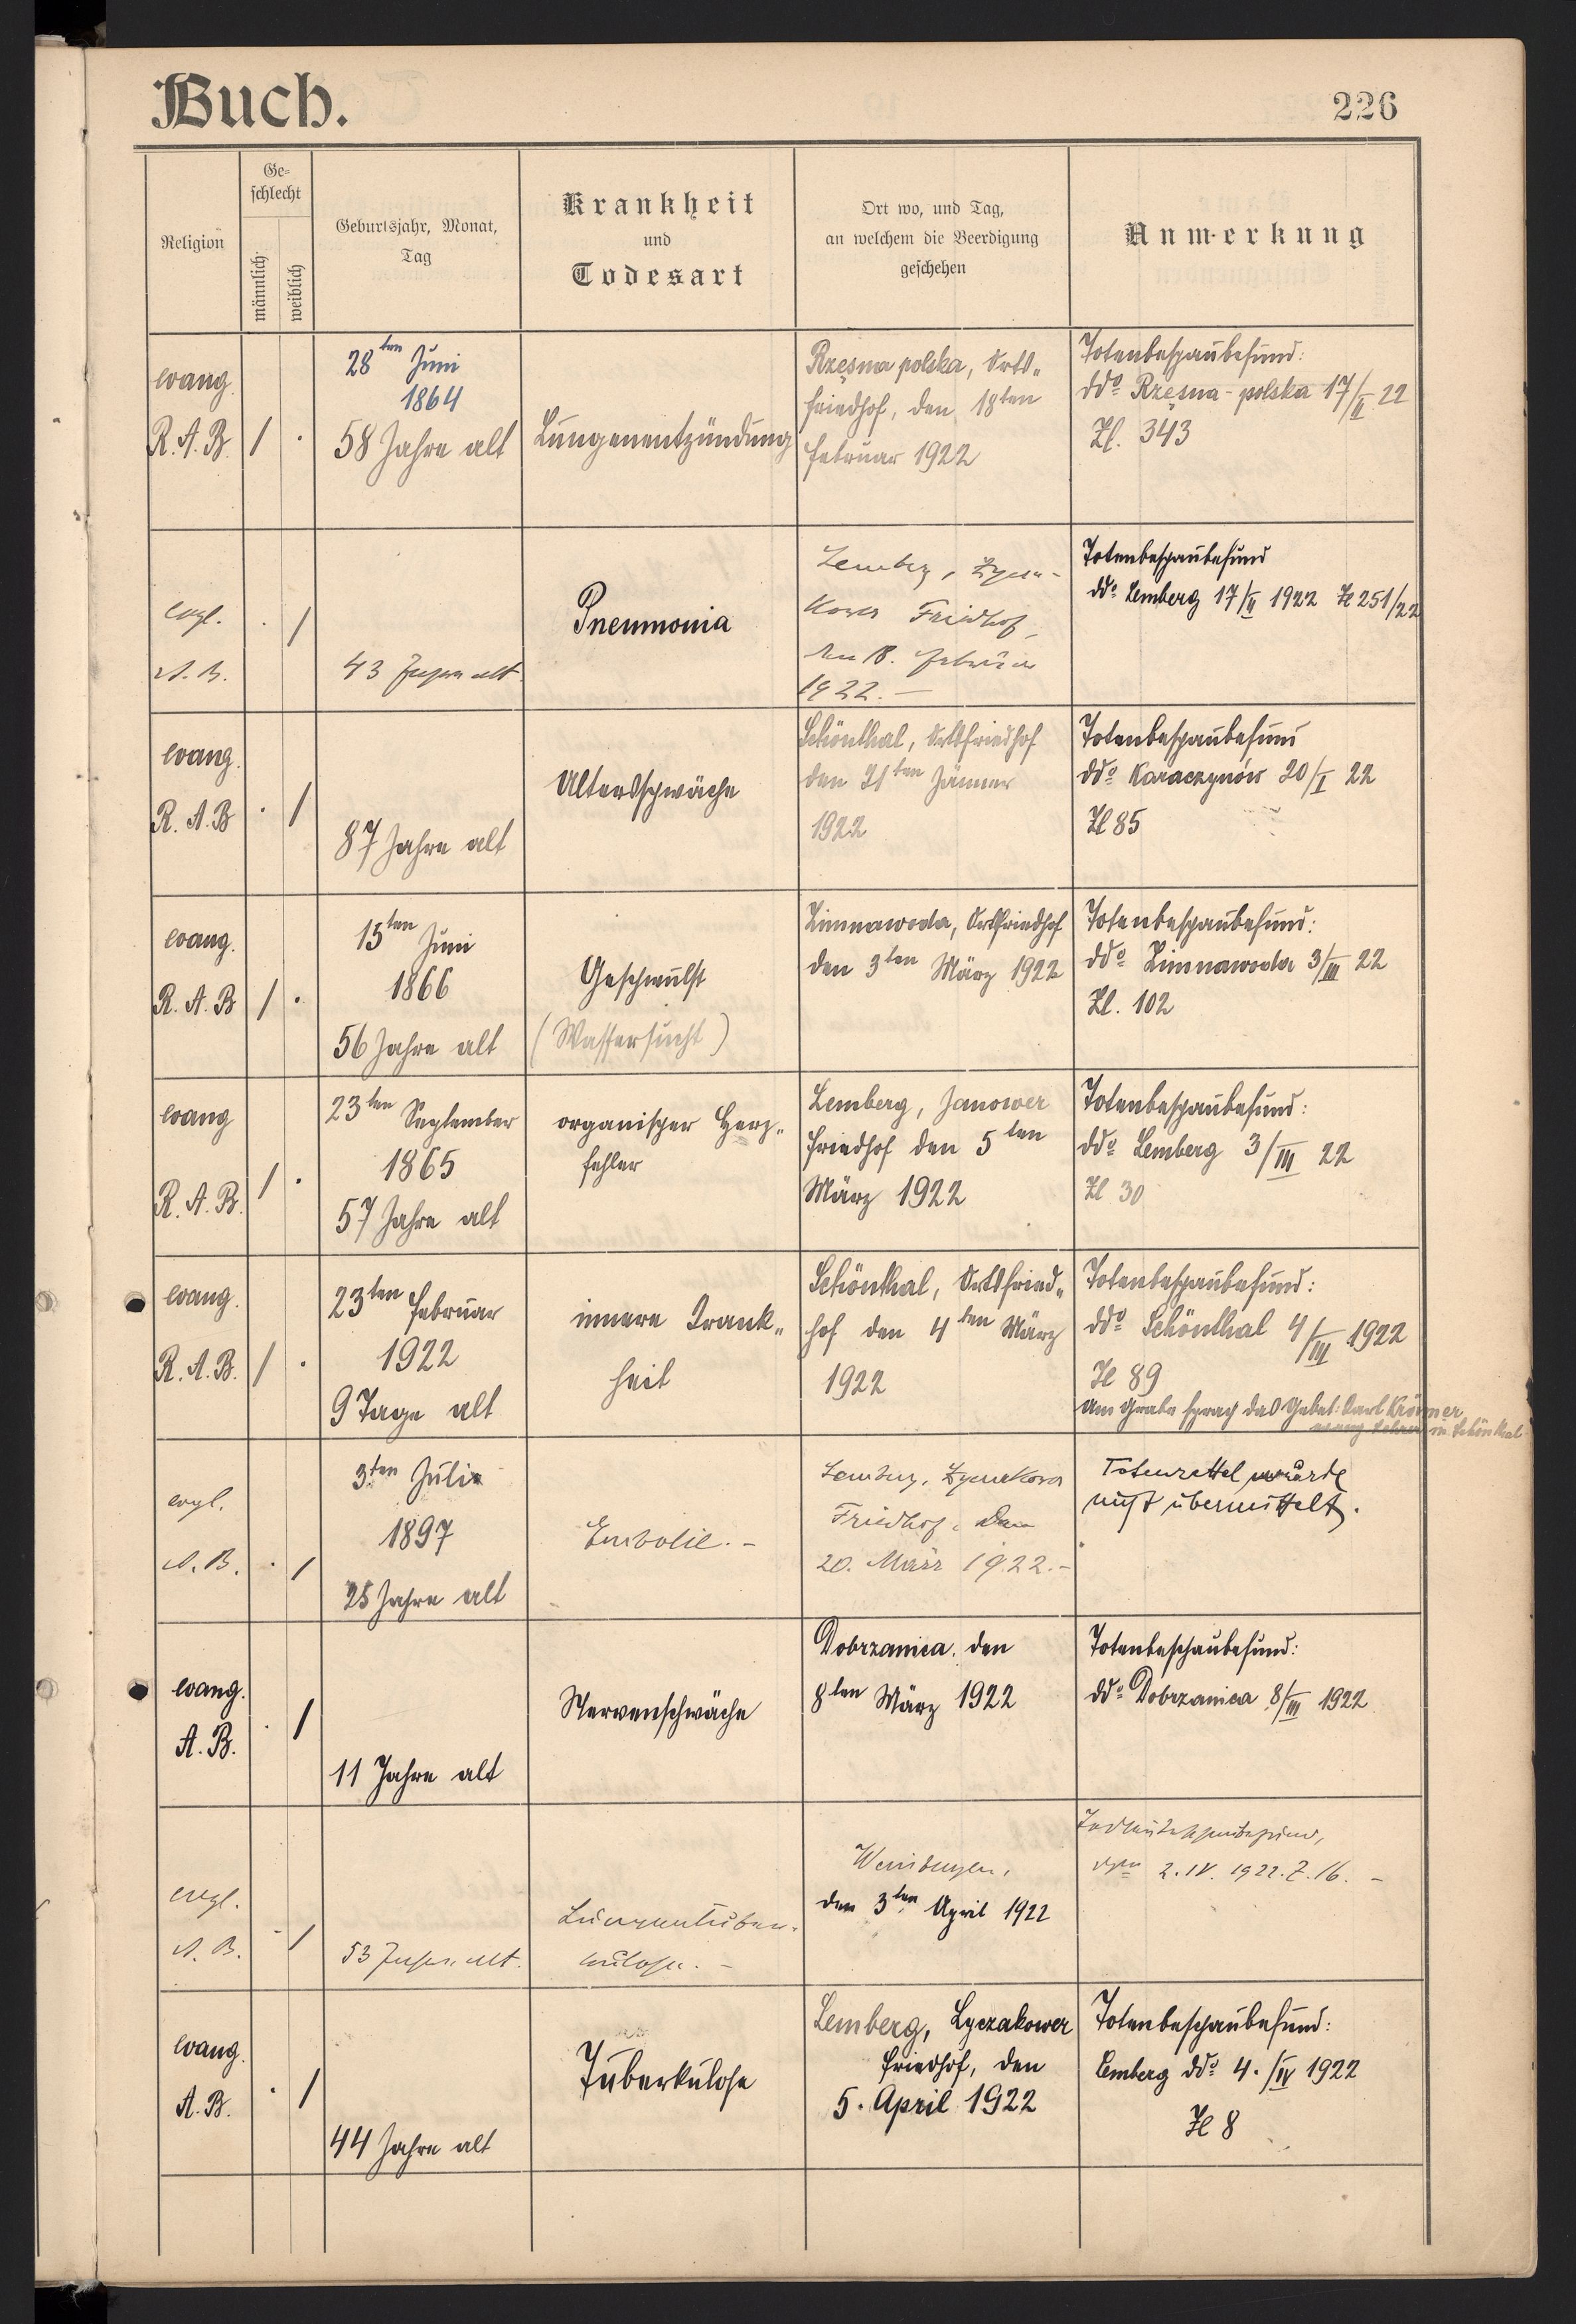 Buch.
226
Religion
Ge-
schlecht
männlich
weiblich
Geburtsjahr, Monat,
Tag
Krankheit
und
Todesart
Ort wo, und Tag,
an welchem die Beerdigung
geschehen
Anmerkung
evang.
R. A. B.
/ .
28ten Juni
1864
58 Jahre alt
Lungenentzündung
Rzęsna polska, Orts„
friedhof, den 18ten
Februar 1922
Totenbeschaubefund:
ddo Rzęsna-polska 17/II 22
Zl. 343
evgl.
A. B.
. /
43 Jahre alt.
Pneumonia
Lemberg,
Friedhof,
den 18. Februar
1922.—
Totenbeschaubefund
ddo Lemberg 17/II 1922 Zl 251/22
evang.
R. A. B
. /
87 Jahre alt
Altersschwäche
Schönthal, Ortsfriedhof
den 21ten Jänner
1922
Totenbeschaubefund
ddo Karaczynów 20/I 22
Zl 85
evang.
R. A. B
/ .
15ten Juni
1866
56 Jahre alt
Geschwulst
(Wassersucht)
Zimnawoda, Ortsfriedhof
den 3ten März 1922
Totenbeschaubefund:
ddo Zimnawoda 3/III 22
Zl. 102
evang
R. A. B.
/ .
23ten September
1865
57 Jahre alt
organischer Herz„
fehler
Lemberg, Janower
Friedhof den 5ten
März 1922
Totenbeschaubefund:
ddo Lemberg 3/III 22
Zl 30
evang.
R. A. B.
/ .
23ten Februar
1922
9 Tage alt
innere Krank„
heit
Schönthal, Ortsfried„
hof den 4ten März
1922
Totenbeschaubefund:
ddo Schönthal 4/III 1922
Zl 89
Am Grabe sprach das Gebet: Karl Krömer
evang Lehrer in Schönthal
evgl.
A. B.
. /
3ten Juli
1897
25 Jahre alt
Embolie.–
Lemberg,
Friedhof, den
20. März 1922.–
Totenzettel wurde
nicht übermittelt.
evang.
A. B.
. /
11 Jahre alt
Nervenschwäche
Dobrzanica, den
8ten März 1922
Totenbeschaubefund:
ddo Dobrzanica 8/III 1922
evgl.
A. B.
- /
53 Jahre alt.
Lungentuber-
kulose.–
Weinbergen,
den 3ten April 1922
2. IV. 1922. Z. 16. –
evang.
A. B.
. /
44 Jahre alt
Tuberkulose
Lemberg, Lyczakower
Friedhof, den
5. April 1922
Totenbeschaubefund:
Lemberg ddo 4./IV 1922
Zl 8